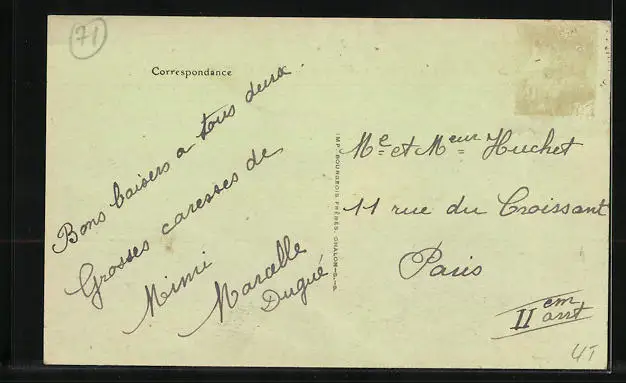 71
Correspondance
Bons baisers a tous deux.
Grosses caresses de
Mimi
Marcelle
Dugué
IMP. BOURGEOIS FRÈRES-CHALON-S-S.
Me et Meur Huchet
11 rue du Croissant
Paris
II em
arrt